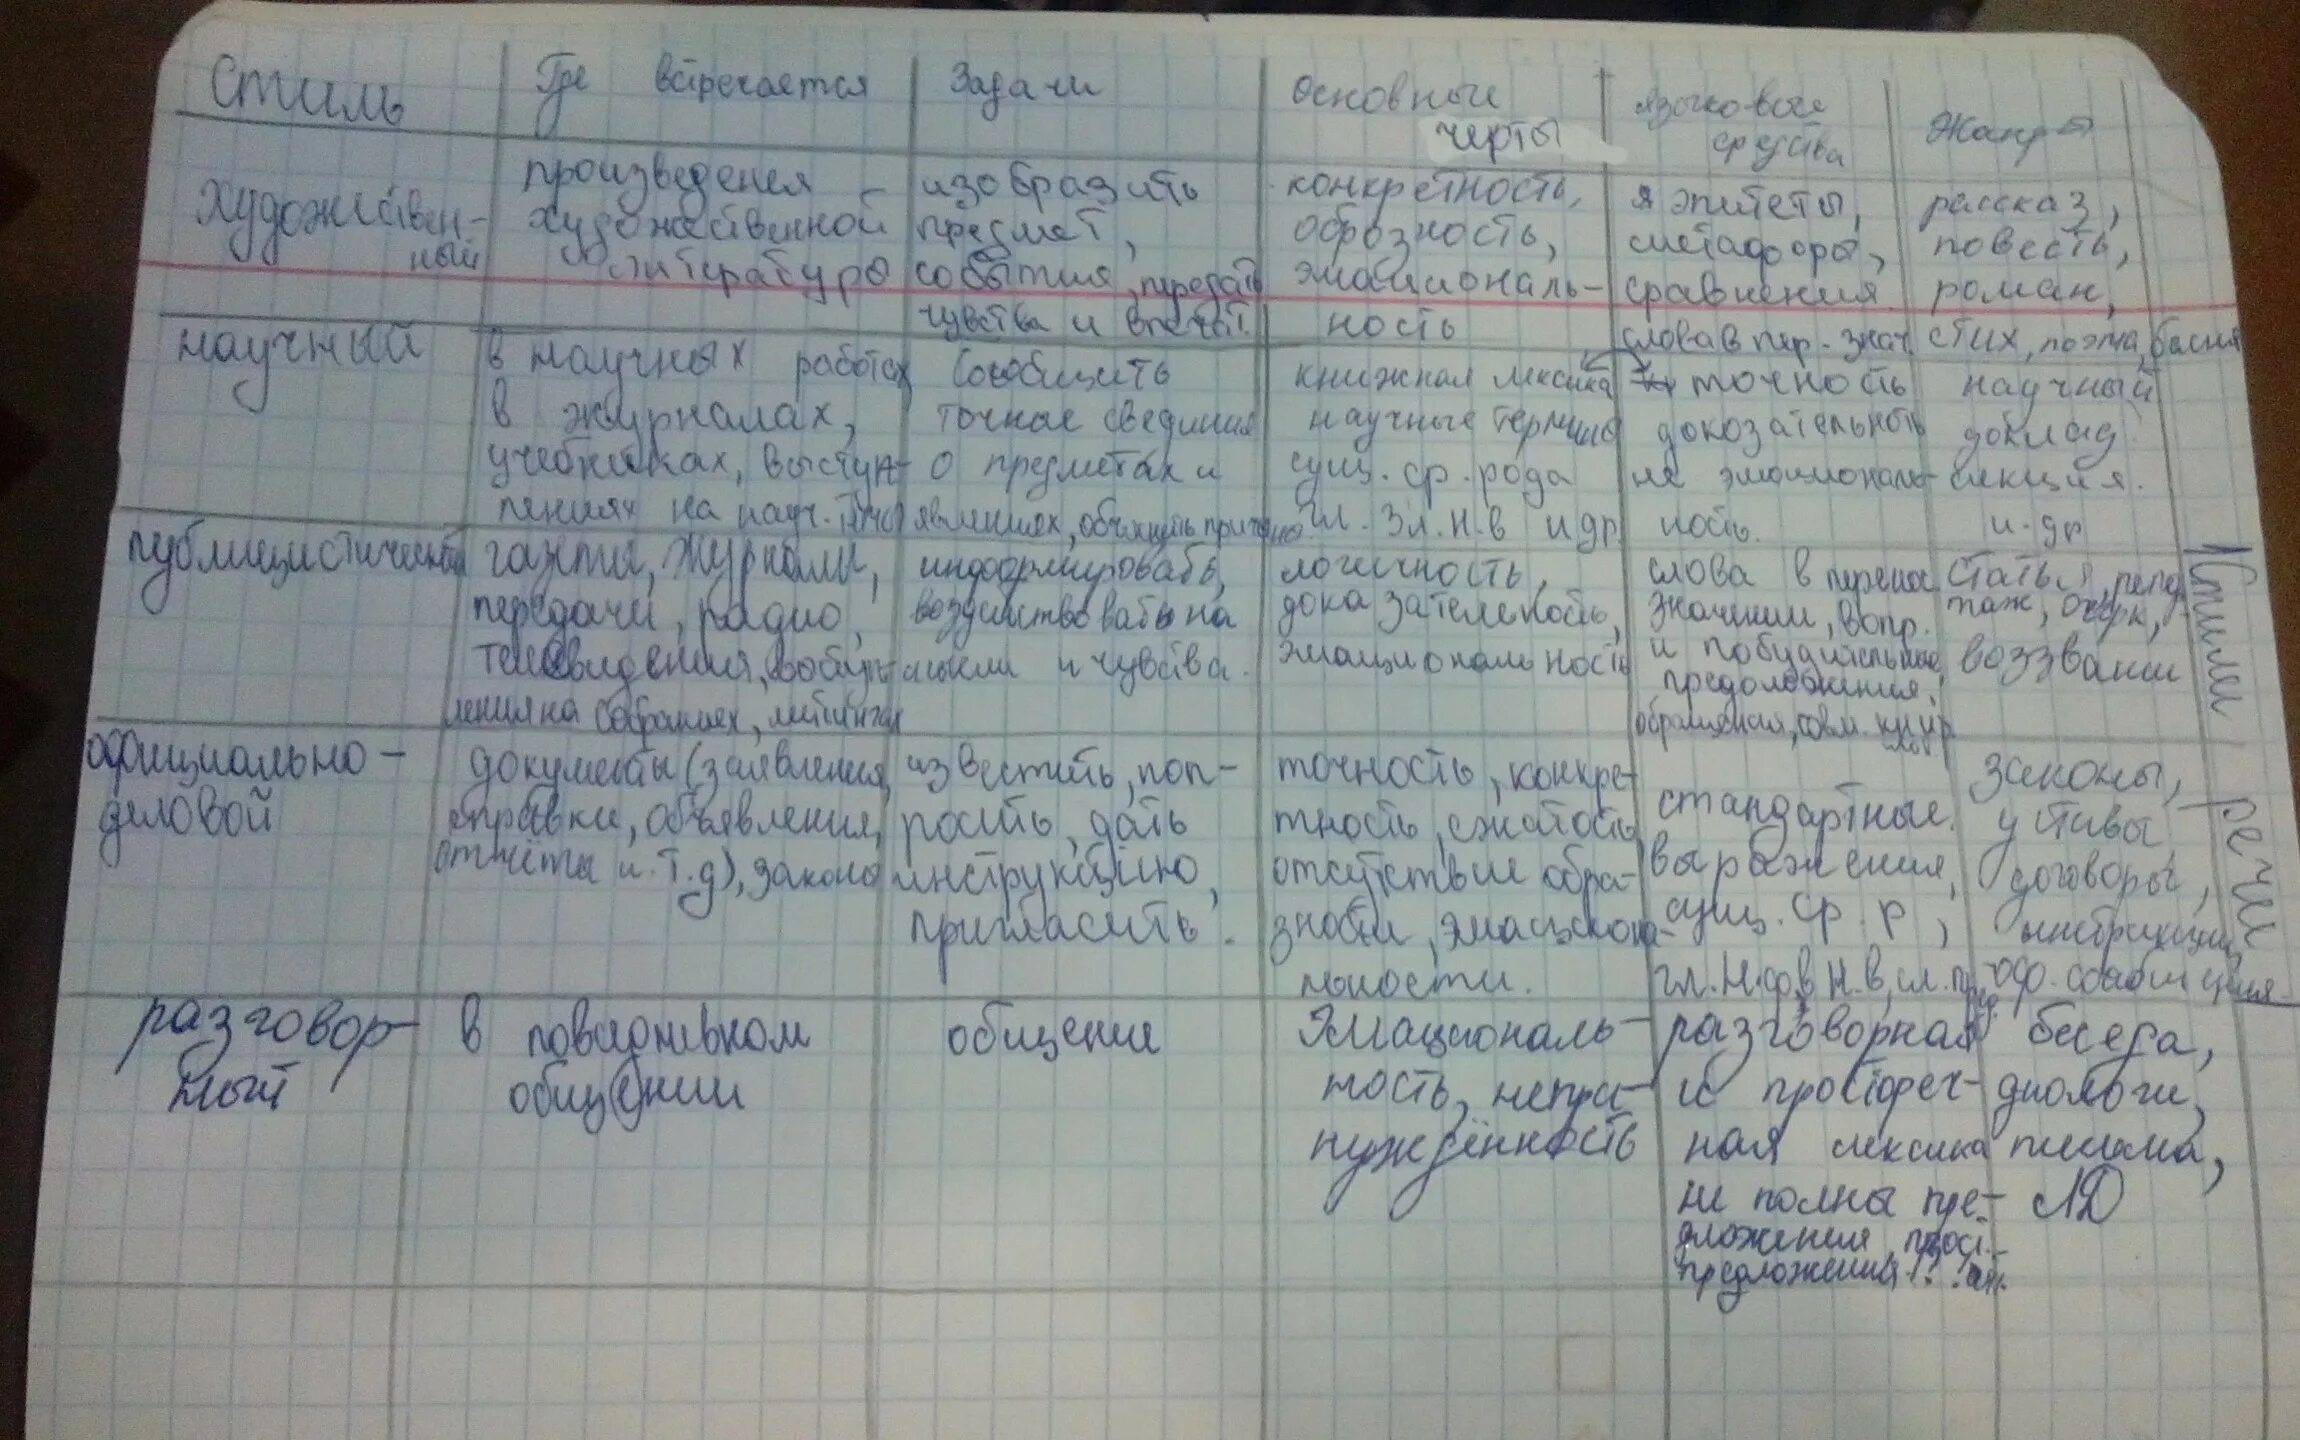 Стиль
Где встречается
Задачи
Основные
черты
языковые
средства
Жанры
художествен-
ный
произведения
художественной
литературе
изобразить
предмет,
события, передать
чувства и впечат.
конкретность,
оброзность,
эмациональ-
ность
я эпитеты,
метафоры,
сравнения
слова в пер. знач.
рассказ,
повесть,
роман,
стих, поэма, басня
научный
в научных работах
в журналах,
учебниках, выступ-
лениях на науч.
Сообщить
точное сведения
о предметах и
явлениях, объяснить
книжная лексика
научные термины
сущ. ср. рода
гл. 3л. н.в и др
точность
докозательность
не эмоциональ-
ность.
научный
доклад.
лекция.
и др
публицистический
газеты, журналы,
передачи, радио,
телевидения,
на собраниях, митингах
информировать,
воздействовать на
мысли и чувства.
логичность,
доказательность,
эмациональность
слова в перенос
значении, вопр.
и побудительные
предложения,
обращения,
статья, репор
таж, очерк,
воззвание
Стили речи
официально-
деловой
документы (заявления,
справки, объявления,
отчёты и.т.д), законы
известить, поп-
росить, дать
инструкцию,
пригласить.
точность, конкре-
тность, сжатость,
отсутствие обра-
зности, эмациона-
льности.
стандартные
выражения,
сущ. ср. р,
гл. Н.ф, в н.в,
законы,
уставы
договоры,
инструкции,
оф. сообщения
разговор-
ный
в повседневном
общении
общение
Эмациональ-
ность, непри-
нуждённость
разговорная
и простореч-
ная лексика
не полны пре-
дложения, прост.
предложения
беседа,
диологи,
письма,
ЛД